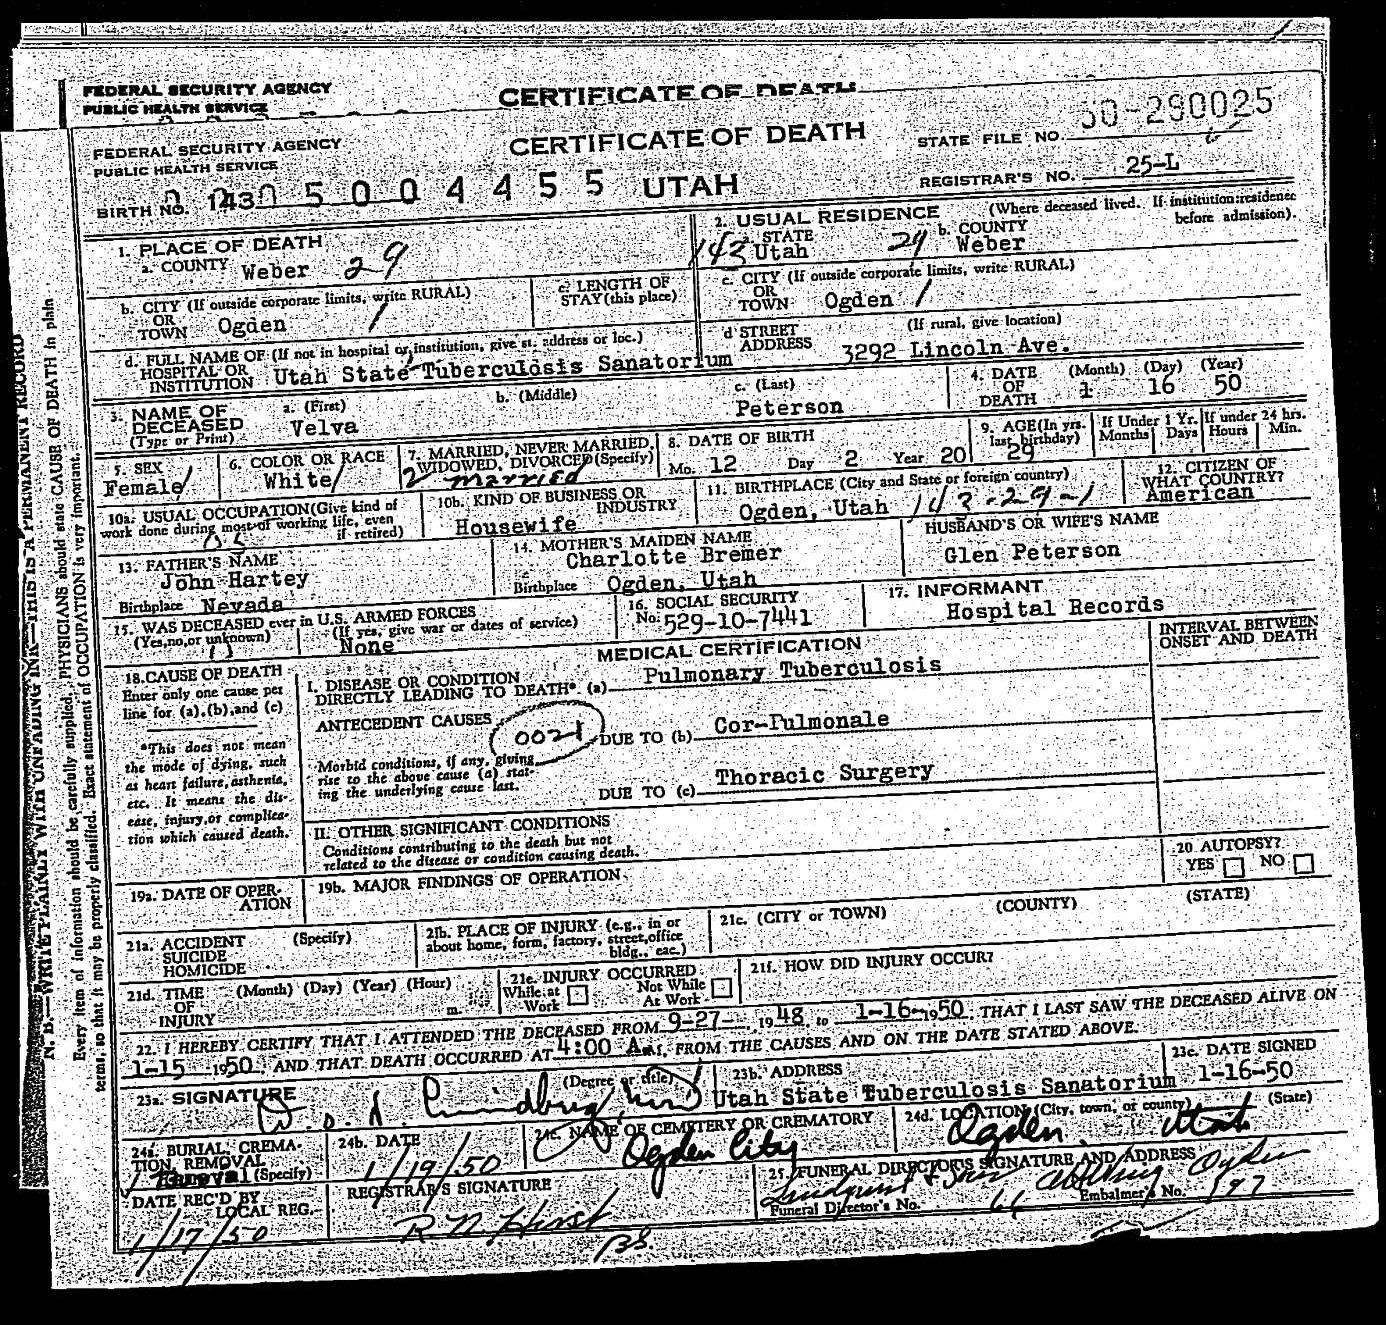 FEDERAL SECURITY AGENCY
PUBLIC HEALTH SERVICE
CERTIFICATE OF DEATH
FEDERAL SECURITY AGENCY
PUBLIC HEALTH SERVICE
CERTIFICATE OF DEATH
STATE FILE NO. 50-290025
BIRTH NO. 1430 5 0 0 4 4 5 5 UTAH
REGISTRAR'S NO. 25-L
1. PLACE OF DEATH
a. COUNTY Weber 29
2. USUAL RESIDENCE (Where deceased lived. If institution: residence before admission).
a. STATE 143 Utah 29 b. COUNTY Weber
b. CITY (If outside corporate limits, write RURAL)
OR TOWN Ogden 1
c. LENGTH OF STAY (this place)
c. CITY (If outside corporate limits, write RURAL)
OR TOWN Ogden 1
d. FULL NAME OF (If not in hospital or institution, give st. address or loc.)
HOSPITAL OR INSTITUTION Utah State Tuberculosis Sanatorium
d STREET ADDRESS (If rural, give location)
3292 Lincoln Ave.
3. NAME OF DECEASED (Type or Print)
a. (First) Velva
b. (Middle)
c. (Last) Peterson
4. DATE OF DEATH (Month) (Day) (Year)
1 16 50
5. SEX Female
6. COLOR OR RACE White
7. MARRIED, NEVER MARRIED, WIDOWED, DIVORCED (Specify)
2 married
8. DATE OF BIRTH
Mo. 12 Day 2 Year 20
9. AGE (In yrs. last birthday) 29
If Under 1 Yr. Months Days
If under 24 hrs. Hours Min.
10a. USUAL OCCUPATION (Give kind of work done during most of working life, even if retired)
10b. KIND OF BUSINESS OR INDUSTRY
Housewife
11. BIRTHPLACE (City and State or foreign country)
Ogden, Utah 143-29-1
12. CITIZEN OF WHAT COUNTRY?
American
13. FATHER'S NAME
John Hartey
Birthplace Nevada
14. MOTHER'S MAIDEN NAME
Charlotte Bremer
Birthplace Ogden, Utah
HUSBAND'S OR WIFE'S NAME
Glen Peterson
15. WAS DECEASED ever in U.S. ARMED FORCES
(Yes, no, or unknown) (If yes, give war or dates of service)
None
16. SOCIAL SECURITY
No. 529-10-7441
17. INFORMANT
Hospital Records
18. CAUSE OF DEATH
Enter only one cause per line for (a), (b), and (c)
*This does not mean the mode of dying, such as heart failure, asthenia, etc. It means the disease, injury, or complication which caused death.
MEDICAL CERTIFICATION
INTERVAL BETWEEN ONSET AND DEATH
I. DISEASE OR CONDITION
DIRECTLY LEADING TO DEATH*. (a) Pulmonary Tuberculosis
ANTECEDENT CAUSES
0021
DUE TO (b) Cor-Pulmonale
Morbid conditions, if any, giving rise to the above cause (a) stating the underlying cause last.
DUE TO (c) Thoracic Surgery
II. OTHER SIGNIFICANT CONDITIONS
Conditions contributing to the death but not related to the disease or condition causing death.
19a. DATE OF OPERATION
19b. MAJOR FINDINGS OF OPERATION
20 AUTOPSY?
YES NO
21a. ACCIDENT SUICIDE HOMICIDE (Specify)
21b. PLACE OF INJURY (e.g., in or about home, form, factory, street, office bldg., eac.)
21c. (CITY or TOWN) (COUNTY) (STATE)
21d. TIME OF INJURY (Month) (Day) (Year) (Hour) m.
21e. INJURY OCCURRED
While at Work Not While At Work
21f. HOW DID INJURY OCCUR?
22. I HEREBY CERTIFY THAT I ATTENDED THE DECEASED FROM 9-27 1948, to 1-16-1950, THAT I LAST SAW THE DECEASED ALIVE ON
1-15 1950, AND THAT DEATH OCCURRED AT 4:00 A.M. FROM THE CAUSES AND ON THE DATE STATED ABOVE.
23a. SIGNATURE (Degree or title)
23b. ADDRESS
Utah State Tuberculosis Sanatorium
23c. DATE SIGNED
1-16-50
24a. BURIAL, CREMATION, REMOVAL (Specify)
24b. DATE
1/19/50
24c. NAME OF CEMETERY OR CREMATORY
Ogden City
24d. LOCATION (City, town, or county) (State)
Ogden. Utah
DATE REC'D BY LOCAL REG.
1/17/50
REGISTRAR'S SIGNATURE
R N Hirst
25. FUNERAL DIRECTOR'S SIGNATURE AND ADDRESS
Lindquist & Sons Ogden
Funeral Director's No. 64
Embalmer's No. 197
N. B.—WRITE PLAINLY WITH UNFADING INK—THIS IS A PERMANENT RECORD
Every item of information should be carefully supplied. PHYSICIANS should state CAUSE OF DEATH in plain
terms, so that it may be properly classified. Exact statement of OCCUPATION is very important.